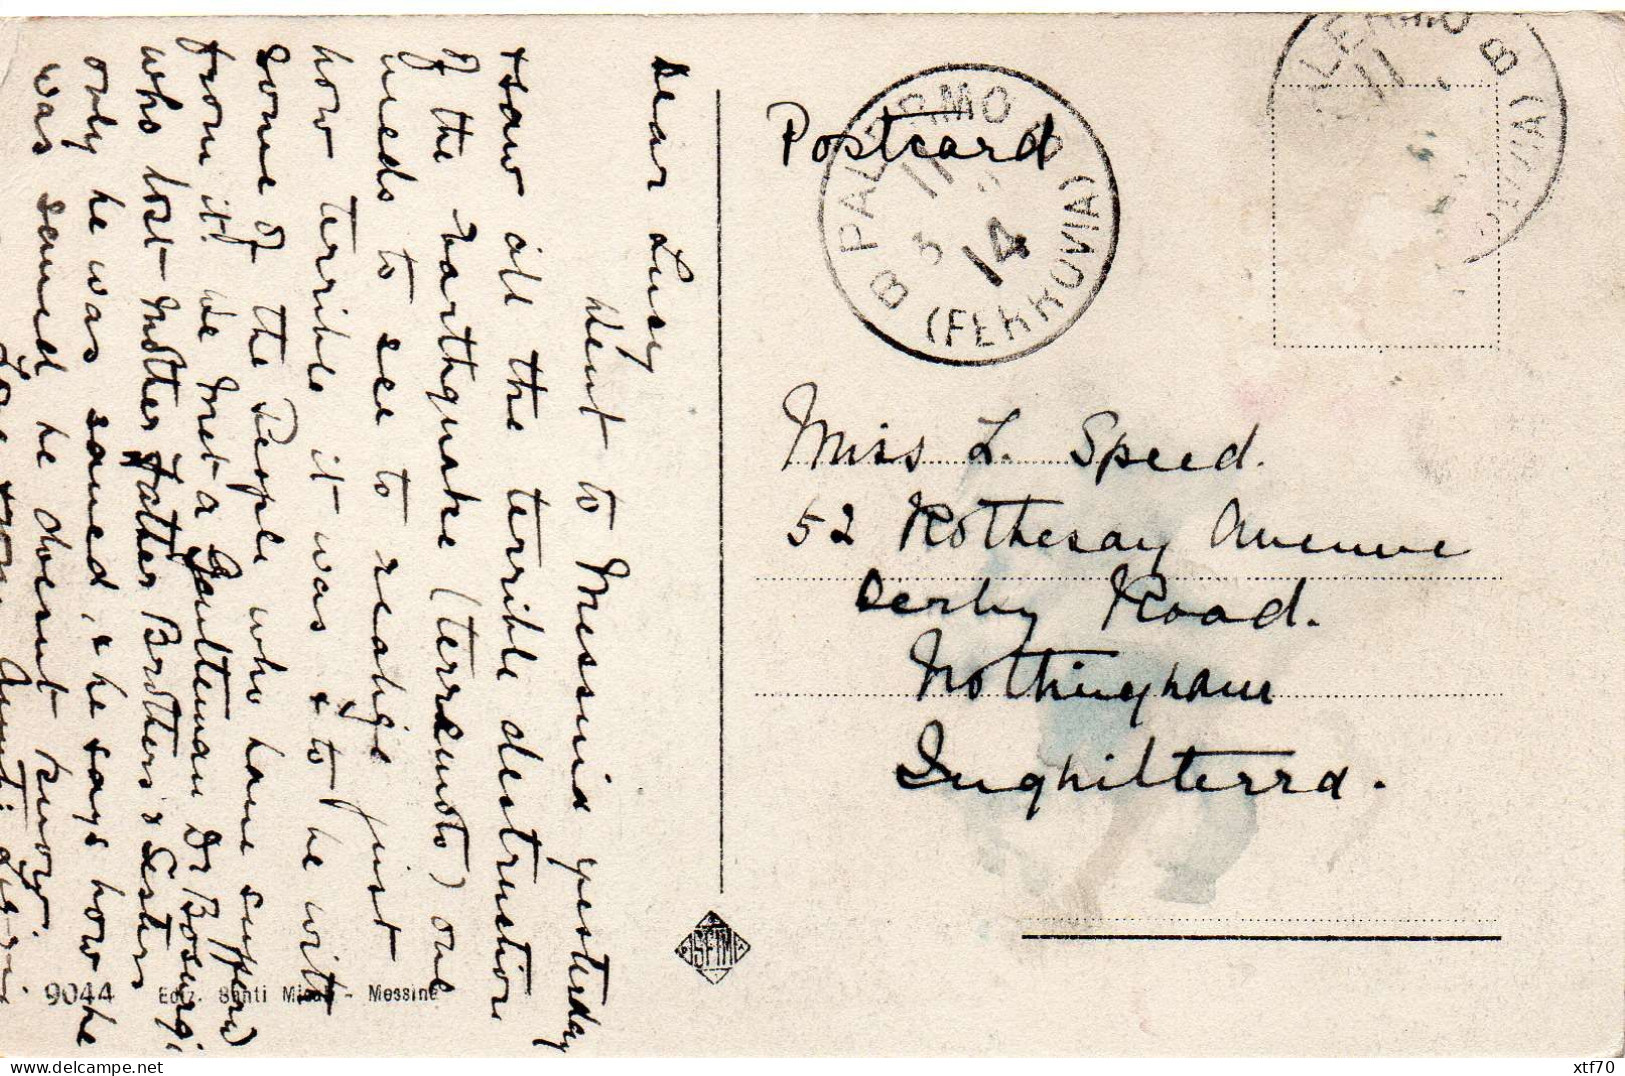 Dear Lucy
Went to Messina yesterday
& saw all the terrible destruction
of the Earthquake (terremoto) one
needs to see to realize just
how terrible it was & to be with
some of the People who have suffered
from it. We Met a Gentleman Dr Bosurgi
who lost Mother Father Brothers & Sisters
only he was saved, & he says how he
was saved he doesnt know.
Love from Aunti
Postcard
PALERMO B
(FERROVIA)
11
3
14
PALERMO B
(FERROVIA)
11
Miss L. Speed.
52 Rothesay Avenue
Derby Road.
Nottingham
Inghilterra.
9044 Ediz. Santi - Messina
xtf70